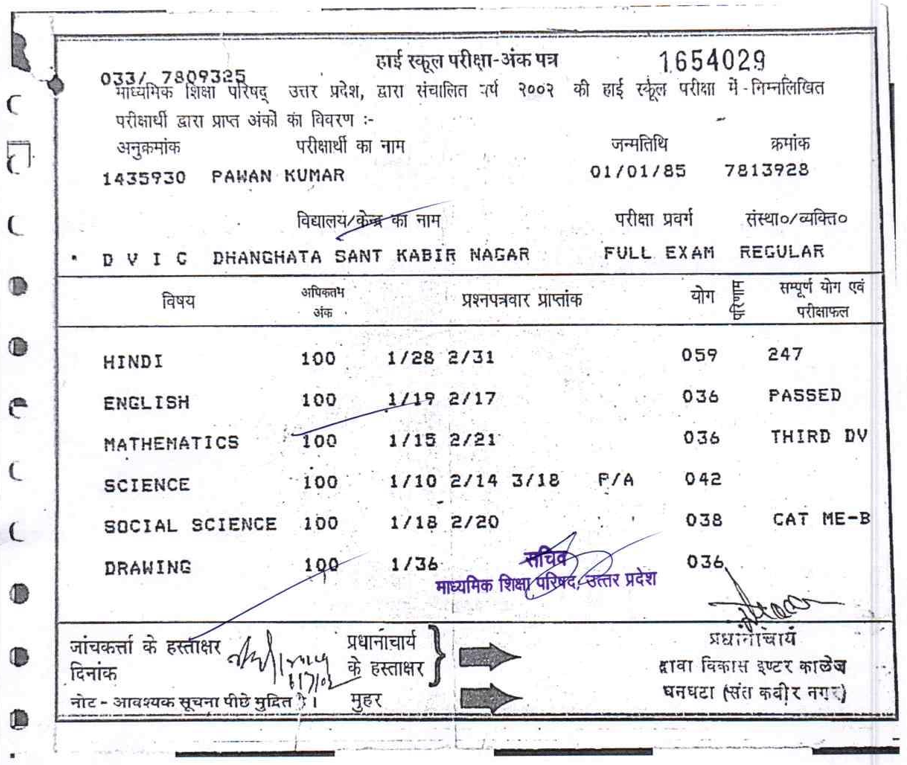 हाई स्कूल परीक्षा-अंक पत्र 1654029
033/ 7809325
माध्यमिक शिक्षा परिषद् उत्तर प्रदेश, द्वारा संचालित वर्ष २००२ की हाई स्कूल परीक्षा में निम्नलिखित
परीक्षार्थी द्वारा प्राप्त अंकों का विवरण :-
अनुक्रमांक परीक्षार्थी का नाम जन्मतिथि क्रमांक
1435930 PAWAN KUMAR 01/01/85 7813928
विद्यालय/केन्द्र का नाम परीक्षा प्रवर्ग संस्था०/व्यक्ति०
D V I C DHANGHATA SANT KABIR NAGAR FULL EXAM REGULAR
विषय अधिकतम अंक प्रश्नपत्रवार प्राप्तांक योग परिणाम सम्पूर्ण योग एवं परीक्षाफल
HINDI 100 1/28 2/31 059 247
ENGLISH 100 1/19 2/17 036 PASSED
MATHEMATICS 100 1/15 2/21 036 THIRD DV
SCIENCE 100 1/10 2/14 3/18 P/A 042
SOCIAL SCIENCE 100 1/18 2/20 038 CAT ME-B
DRAWING 100 1/36 036
सचिव
माध्यमिक शिक्षा परिषद, उत्तर प्रदेश
जांचकर्त्ता के हस्ताक्षर प्रधानाचार्य प्रधानाचार्य
दिनांक के हस्ताक्षर द्वाबा विकास इण्टर कालेज
नोट - आवश्यक सूचना पीछे मुद्रित है। मुहर धनघटा (संत कबीर नगर)